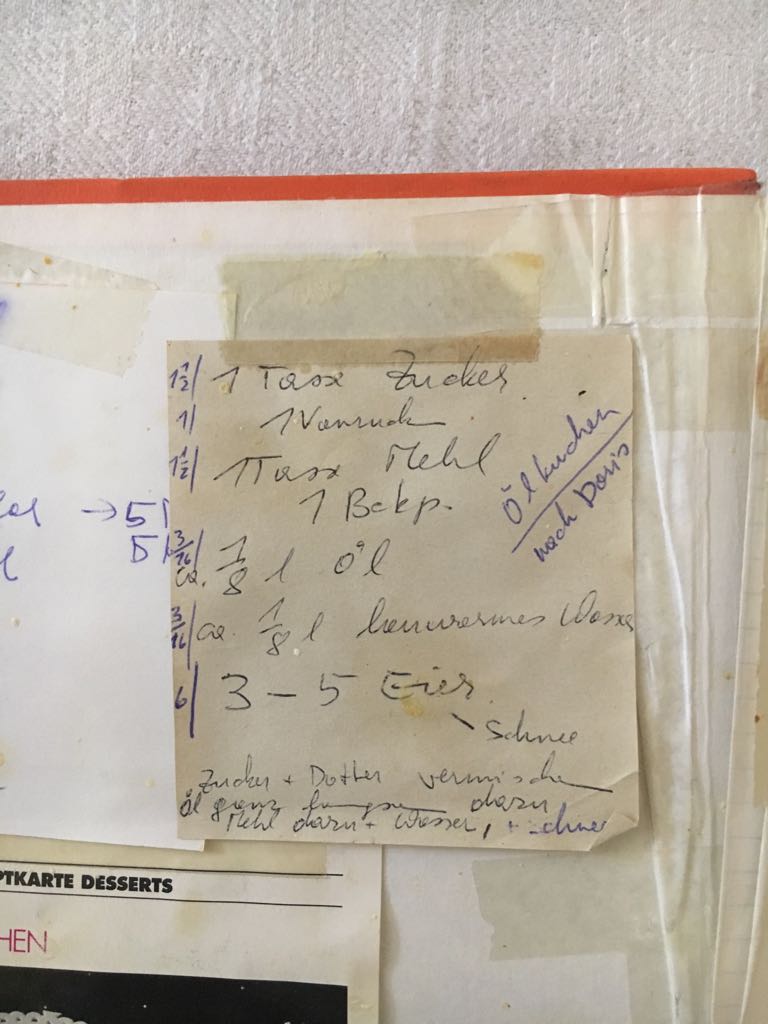 1½/ 1 Tasse Zucker
1/ 1 Vanzuck
1½/ 1 Tasse Mehl
1 Bckp.
3/16/ ca. 1/8 l Öl
3/16/ ca. 1/8 l lauwarmes Wasser
6/ 3 – 5 Eier
Schnee
Zucker + Dotter vermischen
Öl ganz langsam dazu
Mehl dazu + Wasser, + Schnee
Ölkuchen
nach Doris
→ 5
5
PTKARTE DESSERTS
HEN